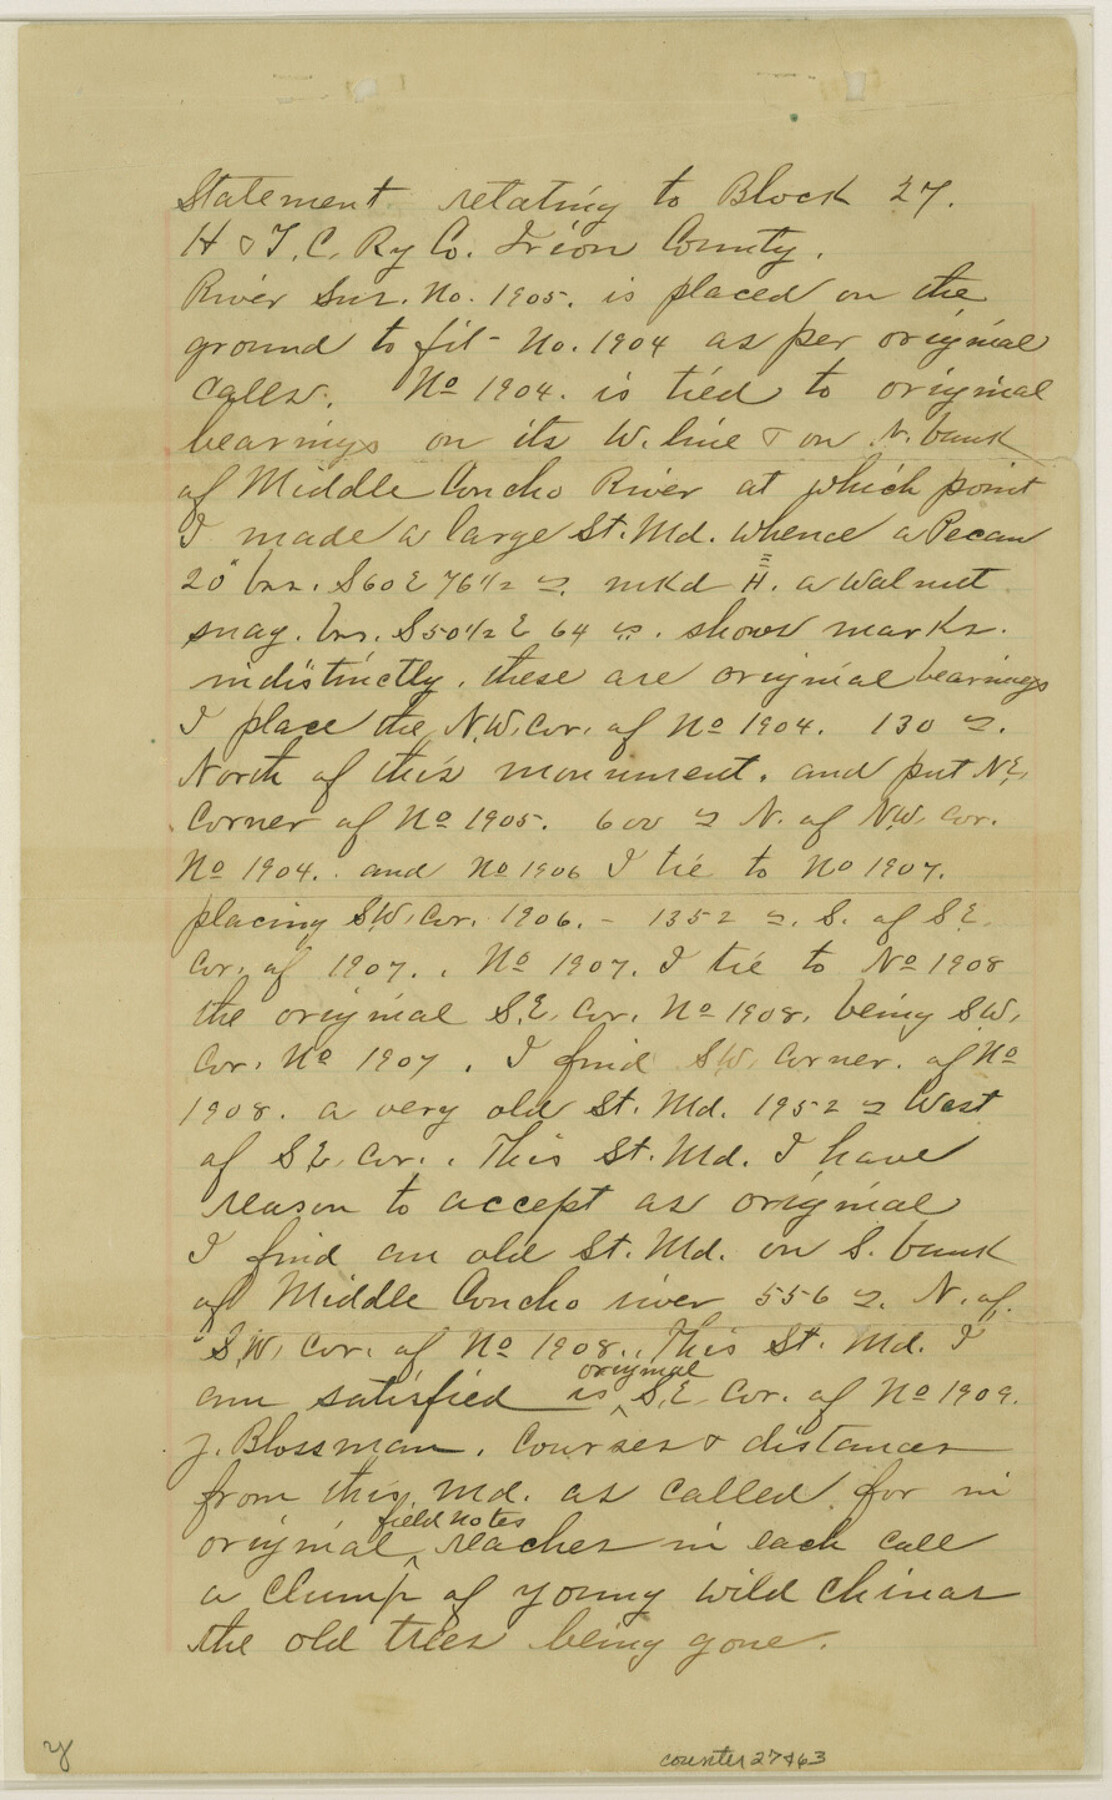 Statement relating to Block 27.
H & T. C. Ry Co. Irion County.
River Sur. No. 1905. is placed on the
ground to fit - No. 1904 as per original
calls. No 1904. is tied to original
bearings on its W. line & on N. bank
of Middle Concho River at which point
I made a large St. Md. whence a Pecan
20" brs. S60E 76 1/2 vs. mkd H. a Walnut
snag. brs. S50 1/2 E 64 vs. shows marks.
indistinctly. these are original bearings
I place the N.W. Cor. of No 1904. 130 vs.
North of this monument. and put N.E.
Corner of No 1905. 600 vs N. of N.W. Cor.
No 1904. and No 1906 I tie to No 1907.
placing S.W. Cor. 1906. - 1352 vs. S. of S.E.
Cor. of 1907. . No 1907. I tie to No 1908
the original S.E. Cor. No 1908. being S.W.
Cor. No 1907. I find S.W. Corner. of No
1908. a very old St. Md. 1952 vs West
of S.E. Cor. . This St. Md. I have
reason to accept as original
I find an old St. Md. on S. bank
of Middle Concho river 556 vs. N. of
S.W. Cor. of No 1908. . This St. Md. I
am satisfied is ^ original S.E. Cor. of No 1909.
J. Blossman. Courses & distances
from this Md. as called for in
original ^ field notes reaches in each call
a clump of young wild Chinas
the old trees being gone.
counter 27463